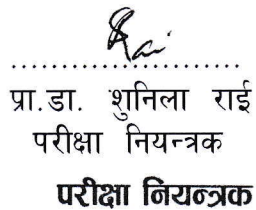 Rai
........................................
प्रा.डा. शुनिला राई
परीक्षा नियन्त्रक
परीक्षा नियन्त्रक